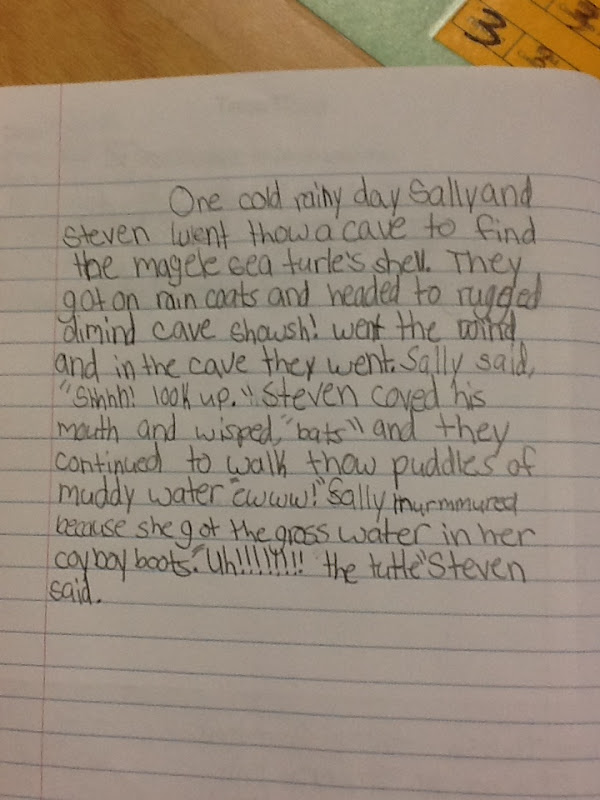 3 3
3
One cold rainy day Sally and
Steven went thow a cave to find
the magele sea turle's shell. They
got on rain coats and headed to rugged
dimind cave showsh! went the wind
and in the cave they went. Sally said,
"Shhhh! look up." Steven coved his
mouth and wisped, "bats" and they
continued to walk thow puddles of
muddy water "ewww!" Sally murmmured
because she got the gross water in her
coyboy boots. "Uh!!!!!!!!! the tutle" Steven
said.